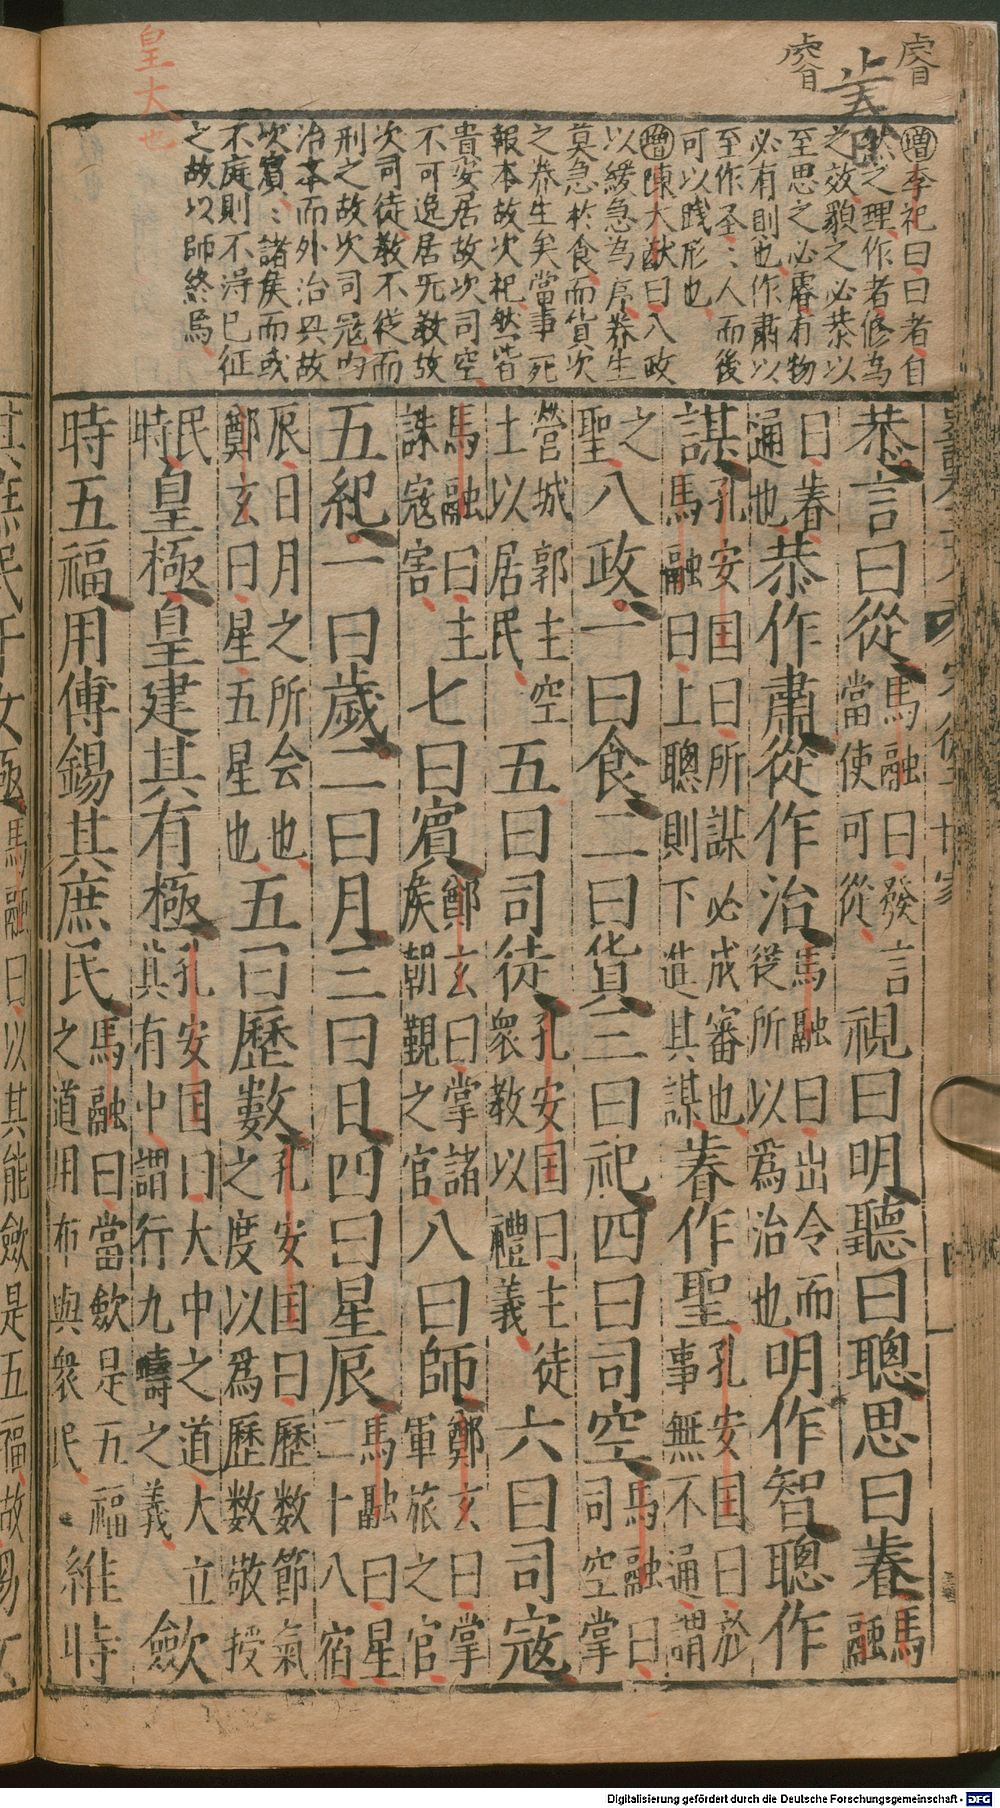 睿
睿
皇大也
李杞曰曰者自
然之理作者修為
之效䫉之必恭以
至思之必睿有物
必有則也作肅以
至作圣〻人而後
可以践形也
陳大猷曰八政
以緩急為序养生
莫急於食而貨次
之养生矣當事死
報本故次祀然皆
貴安居故次司空
不可逸居旡教故
次司徒教不従而
刑之故次司冦内
治本而外治具故
次賓〻諸矦而或
不庭則不淂已征
之故以師終焉
恭言曰從馬融曰發言當使可從視曰明聽曰聰思曰睿馬融
曰睿通也恭作肅從作治馬融曰出令而從所以爲治也明作智聰作
謀孔安国曰所謀必成審也馬融曰上聰則下進其謀睿作聖孔安国曰於事無不通謂
之聖八政一曰食二曰貨三曰祀四曰司空馬融曰司空掌
營城郭主空土以居民五曰司徒孔安国曰主徒衆教以禮義六曰司寇
馬融曰主誅寇害七曰賓鄭玄曰掌諸矦朝覲之官八曰師鄭玄曰掌軍旅之官
五紀一曰歲二曰月三曰日四曰星辰馬融曰星二十八宿
辰日月之所会也鄭玄曰星五星也五曰歷數孔安国曰歷数節氣之度以爲歷数敬授
民時皇極皇建其有極孔安国曰大中之道大立其有中謂行九疇之義歛
時五福用傅錫其庶民馬融曰當歛是五福之道用布與衆民維時
其庶民于女極馬融曰以其能歛是五福故
Digitalisierung gefördert durch die Deutsche Forschungsgemeinschaft - DFG